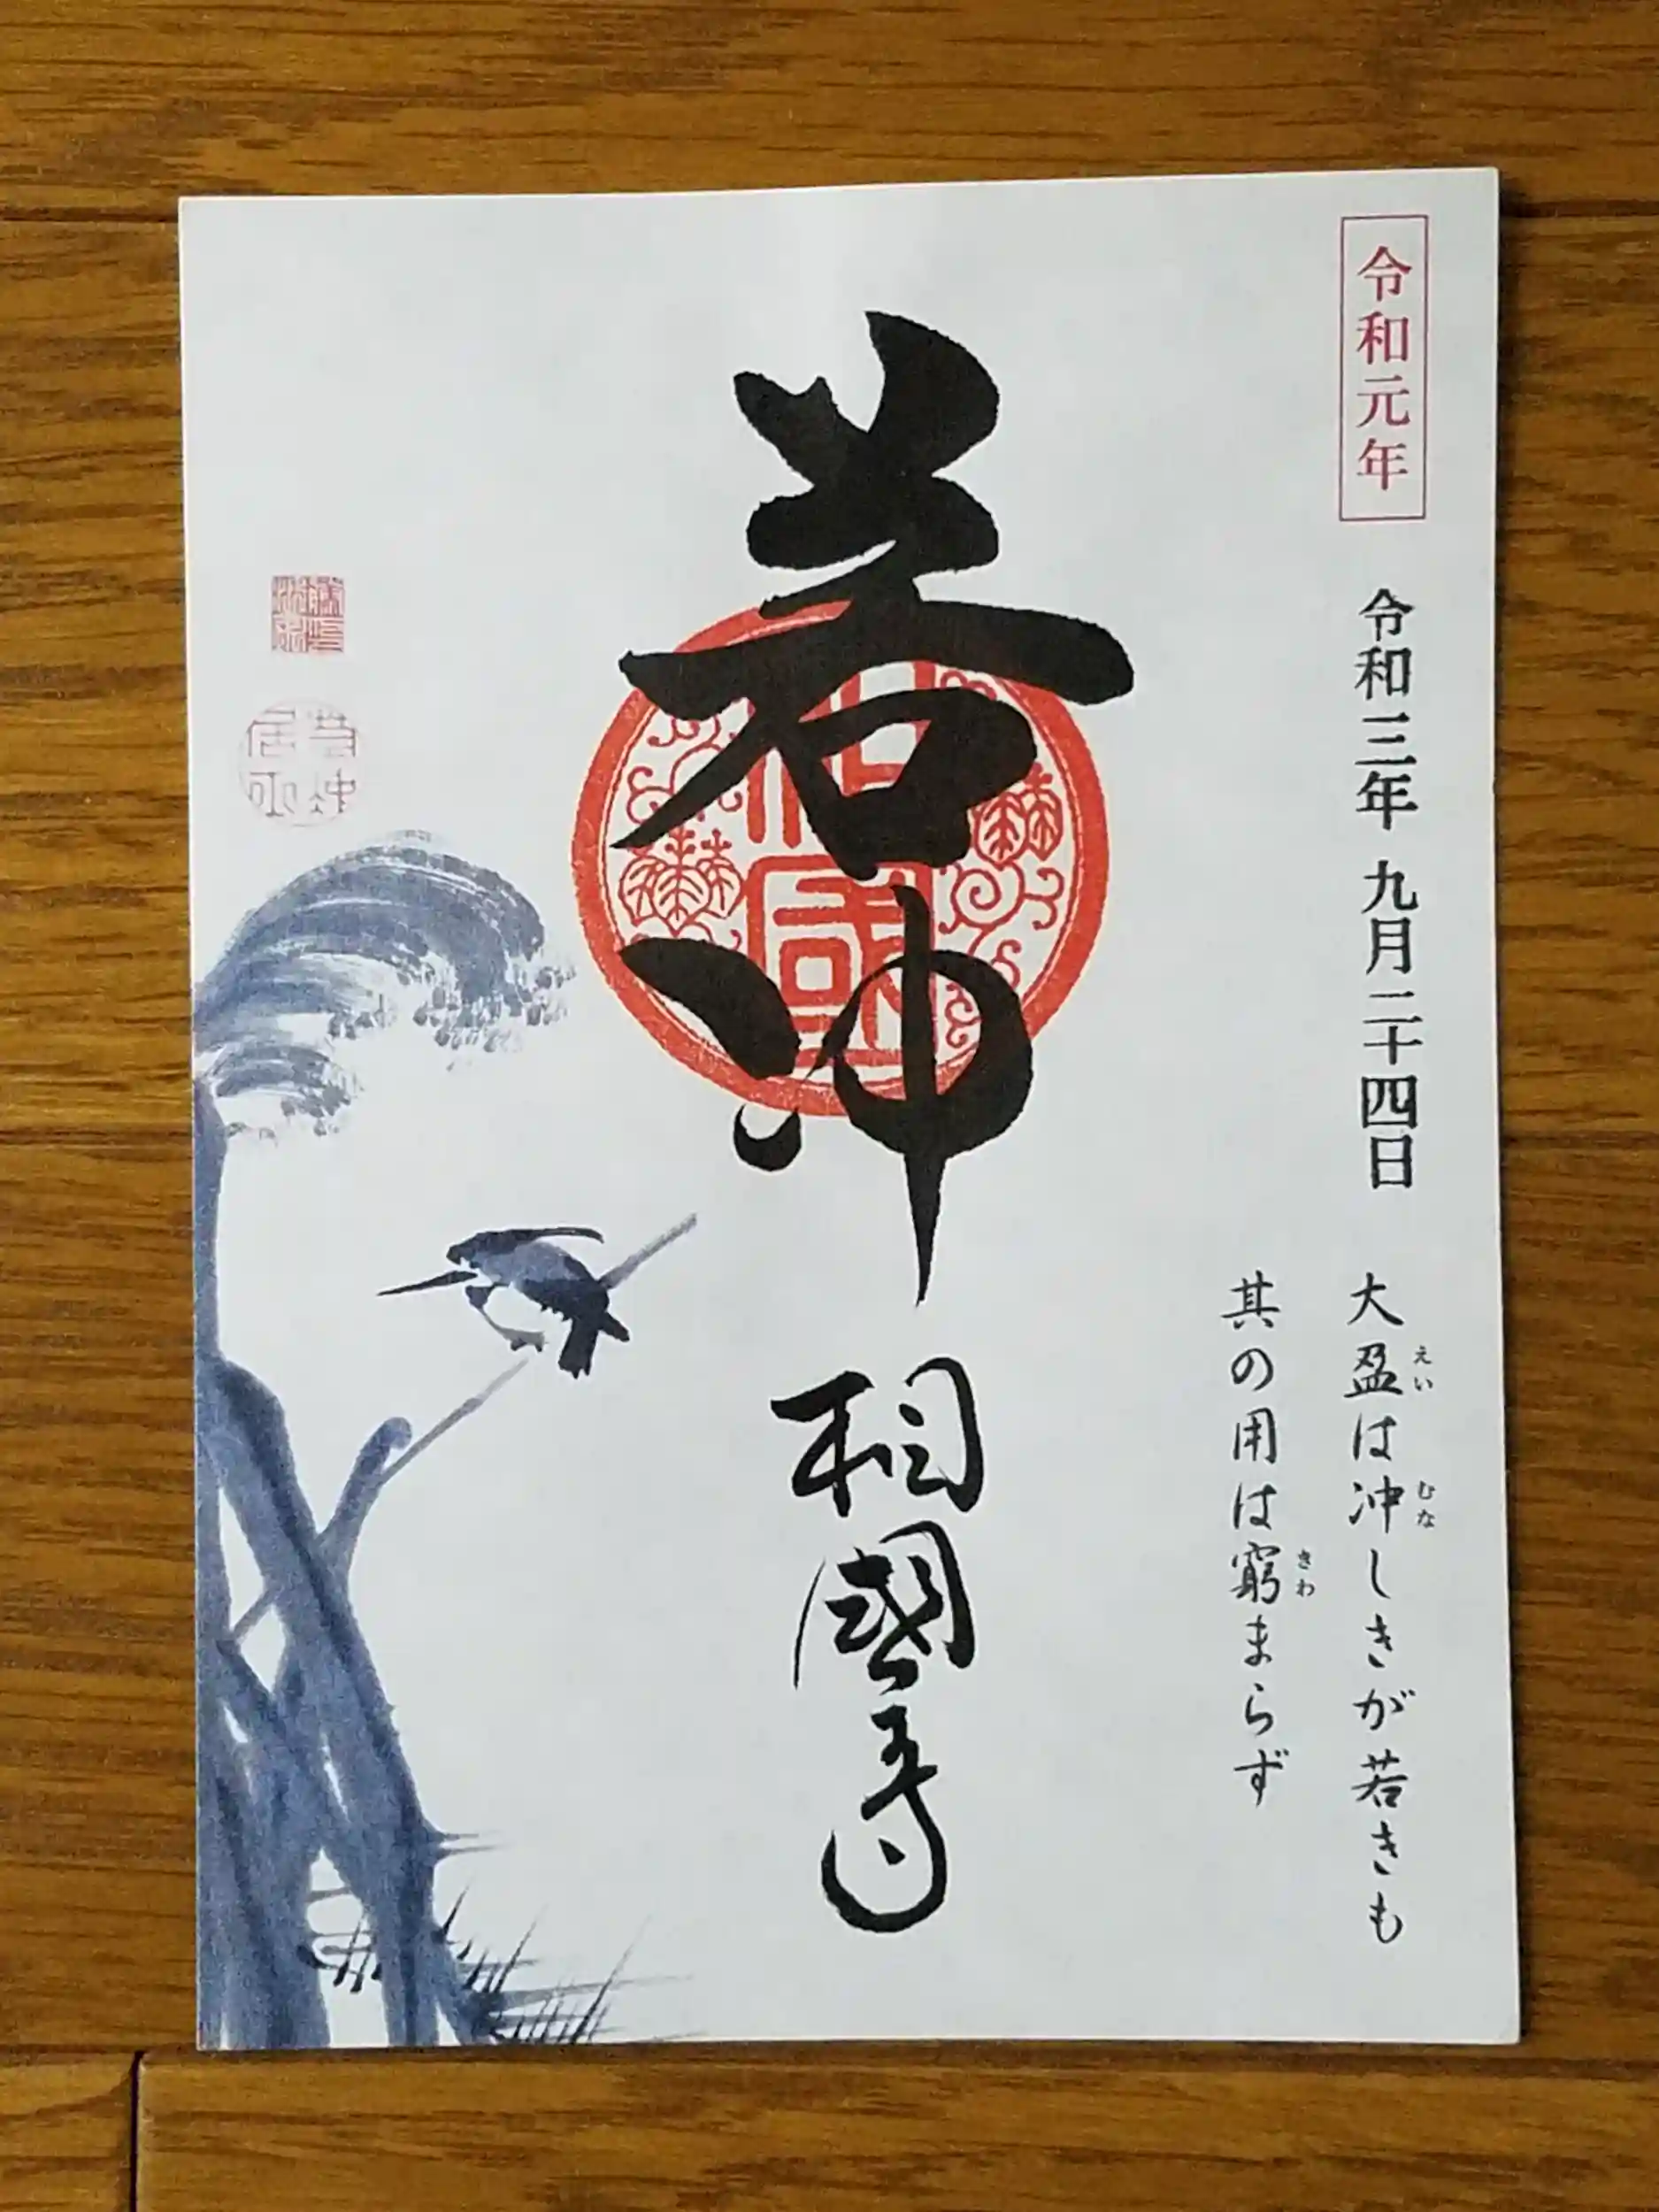 令和元年
令和三年 九月二十四日
大盈は冲しきが若きも
えい
むな
其の用は窮まらず
きわ
若冲
相國寺
相國
若冲居士